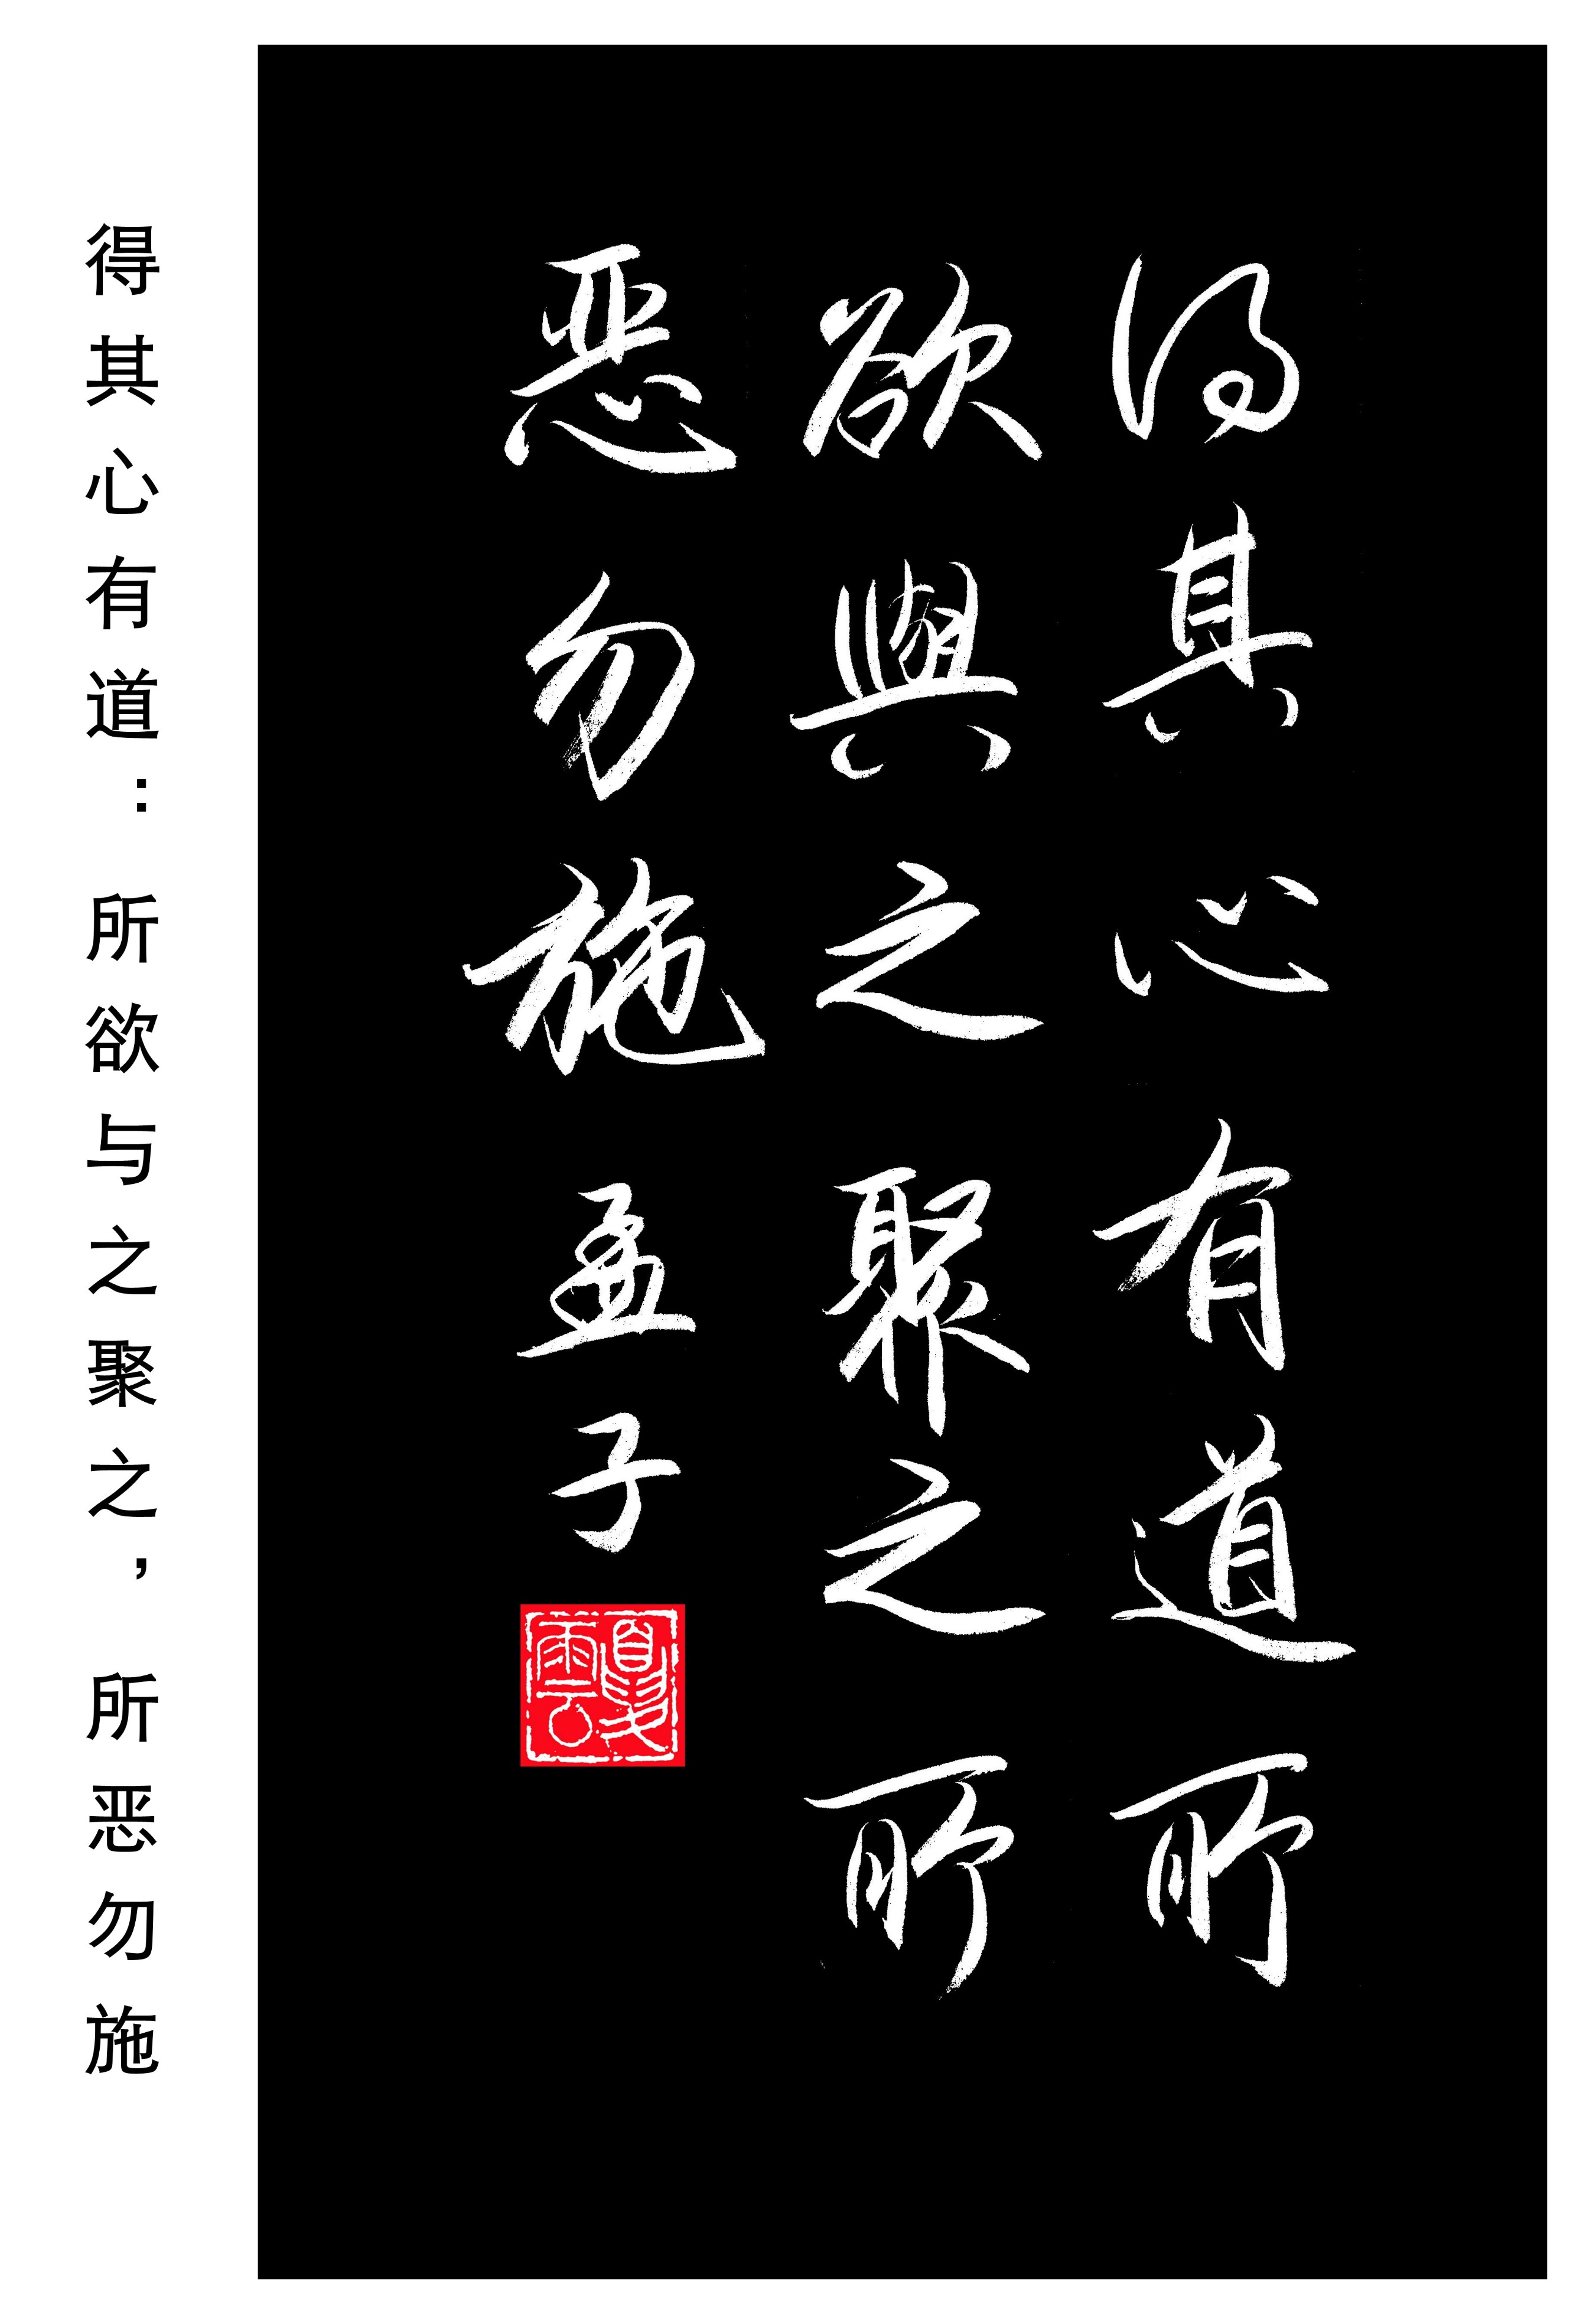 得其心有道所
欲與之聚之所
恶勿施 孟子
夏雲
得其心有道：所欲与之聚之，所恶勿施